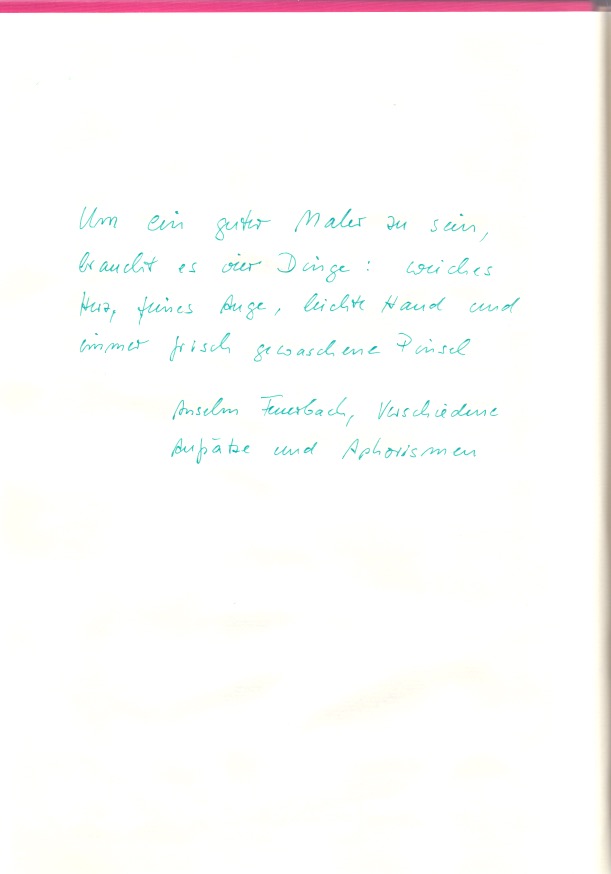 Um ein guter Maler zu sein,
braucht es vier Dinge: weiches
Herz, feines Auge, leichte Hand und
immer frisch gewaschene Pinsel
Anselm Feuerbach, Verschiedene
Aufsätze und Aphorismen